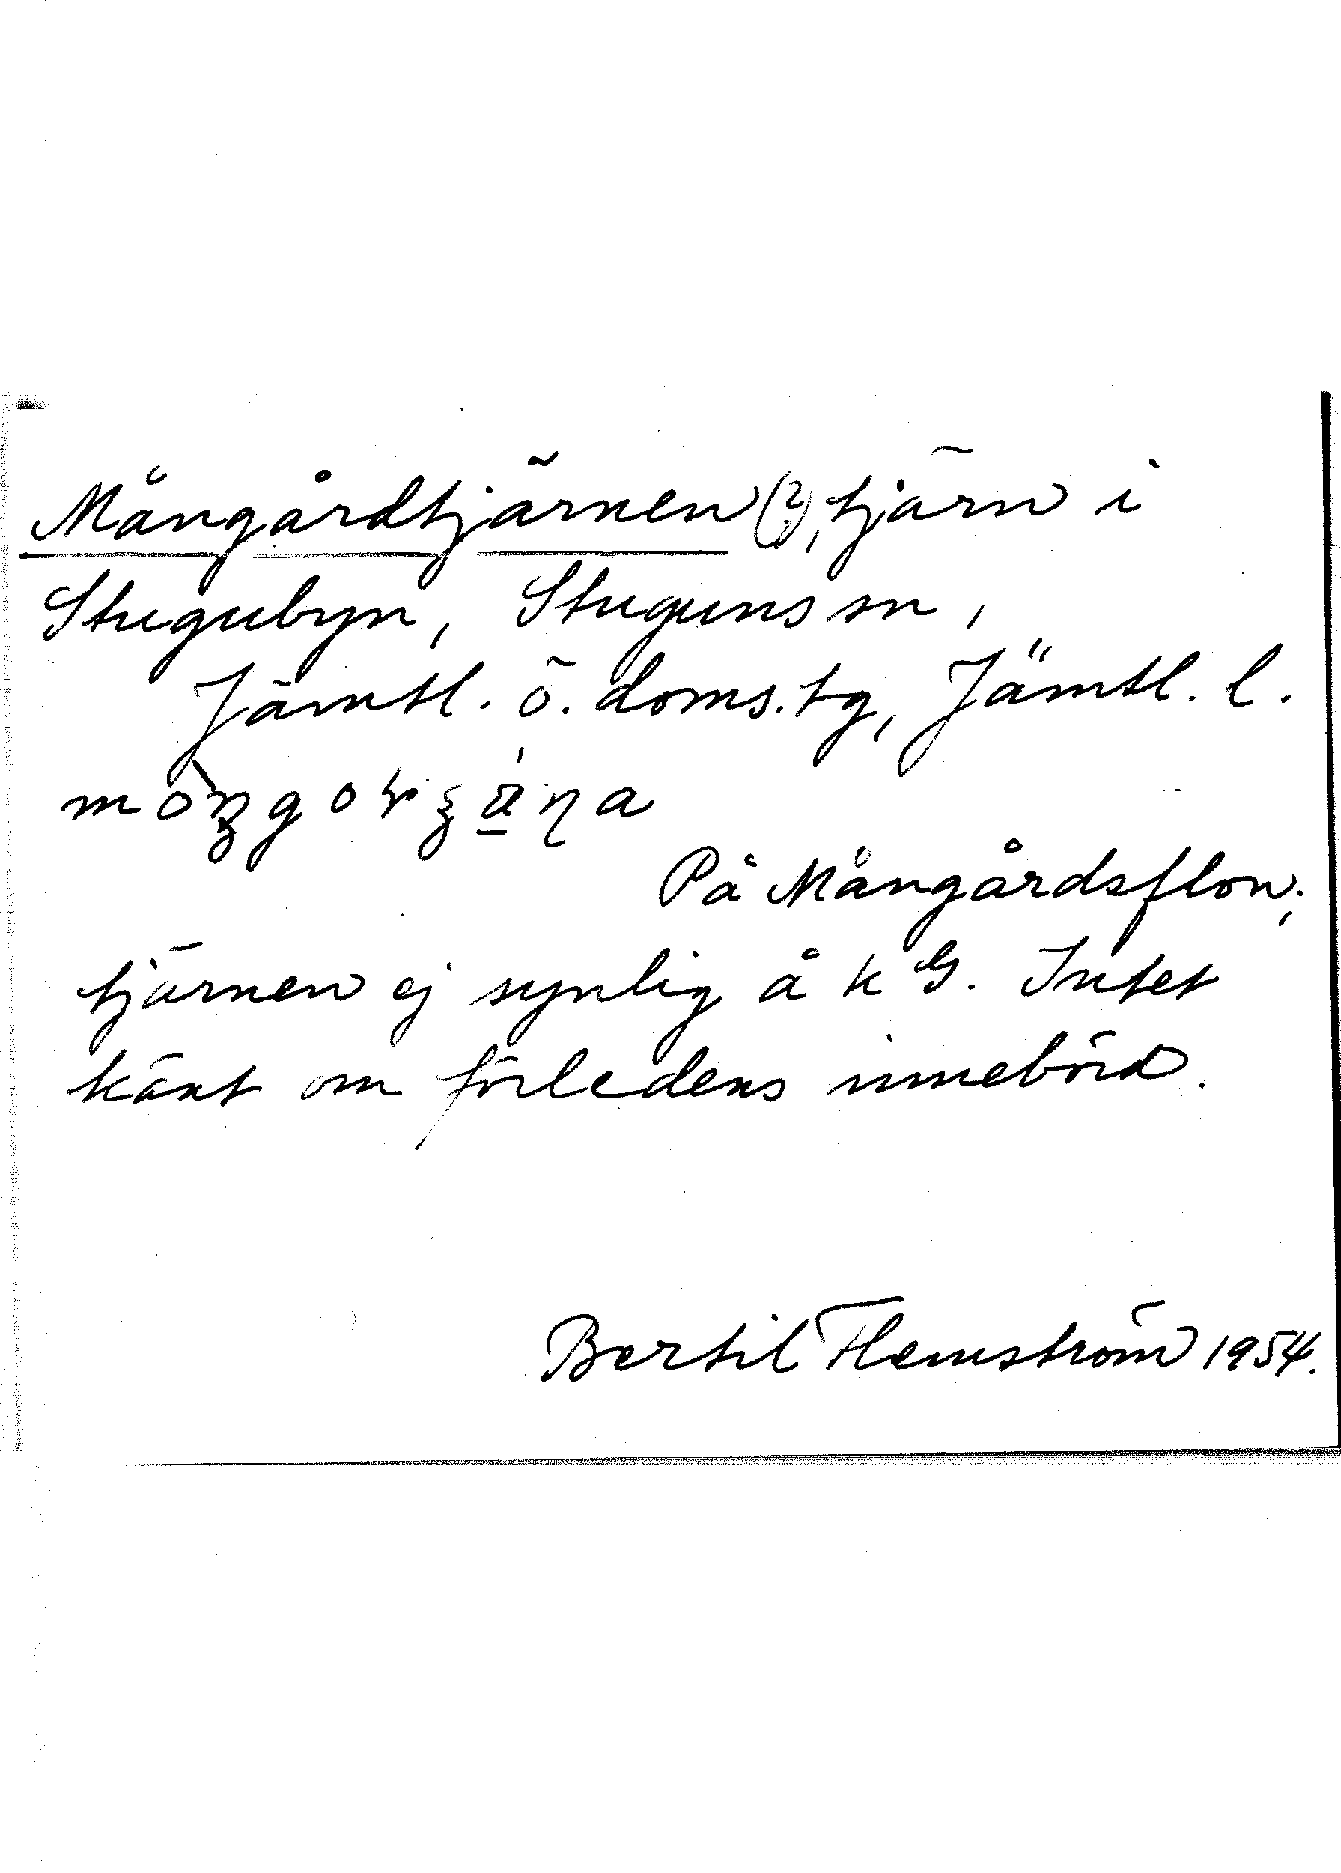 Mångårdtjärnen (?), tjärn i
Stugubyn, Stuguns sn,
Jämtl. ö. doms.tg, Jämtl. l.
På Mångårdsflon;
tjärnen ej synlig å k G. Intet
känt om förledens innebörd.
Bertil Flemström 1954.